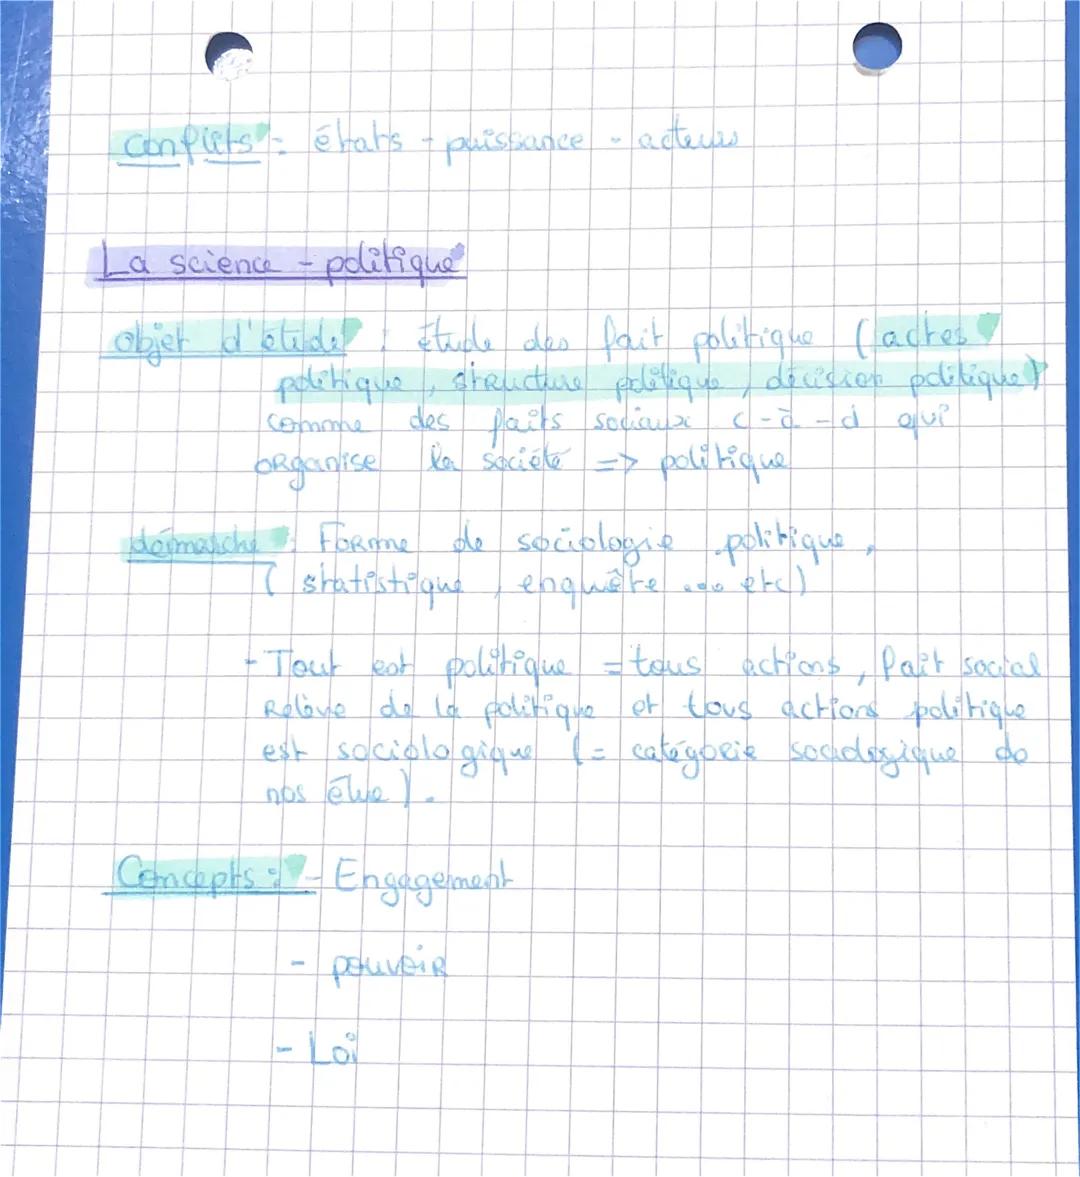 conflits : états - puissance - acteurs
La science - politique
objet d'étude : étude des fait politique (actes
politique, structure politique, décision politique)
comme des faits sociaux c-à-d qui
organise la société => politique
démarche : Forme de sociologie politique,
(statistique, enquête ... etc)
- Tout est politique = tous actions, fait social
Relève de la politique et tous actions politique
est sociologique (= catégorie sociologique de
nos élue).
Concepts : - Engagement
- pouvoir
- Loi